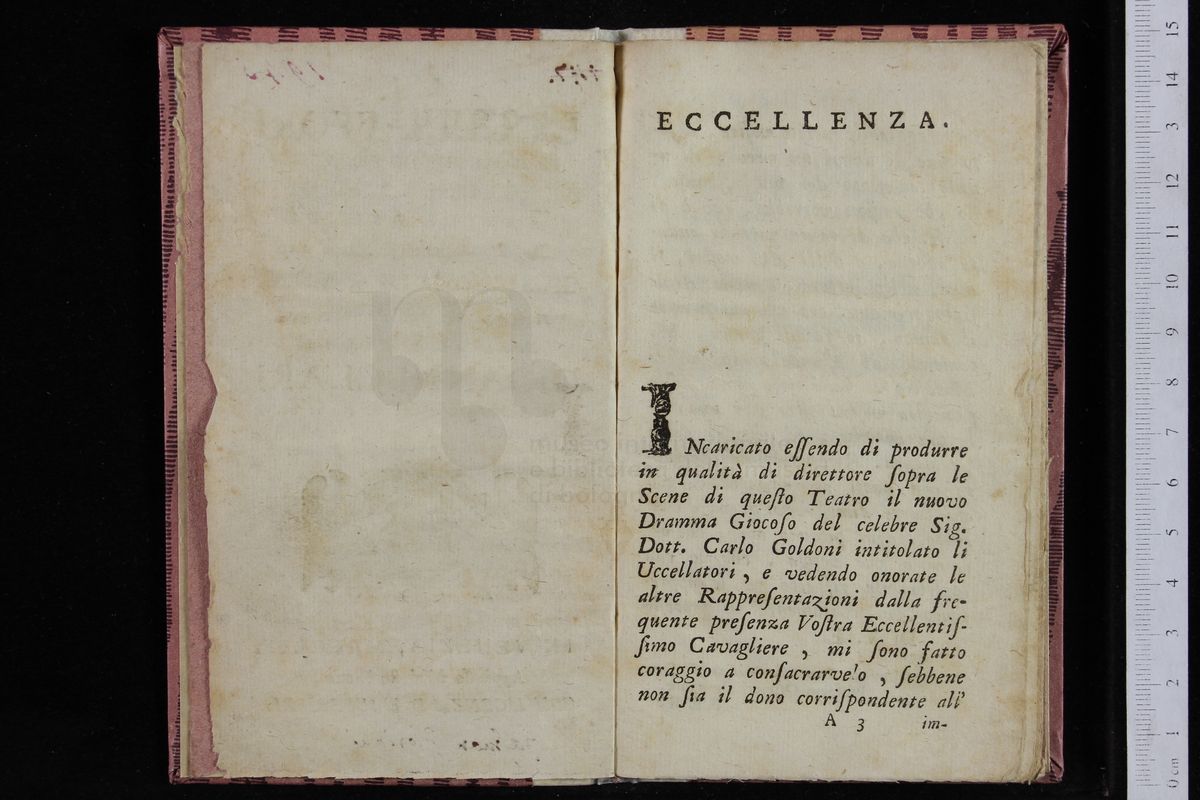 ECCELLENZA.
INcaricato eſſendo di produrre
in qualità di direttore ſopra le
Scene di queſto Teatro il nuovo
Dramma Giocoſo del celebre Sig.
Dott. Carlo Goldoni intitolato li
Uccellatori, e vedendo onorate le
altre Rappreſentazioni dalla fre-
quente preſenza Voſtra Eccellentiſ-
ſimo Cavagliere, mi ſono fatto
coraggio a conſacrarvelo, ſebbene
non ſia il dono corriſpondente all'
A 3 im-
15
14
3
12
11
10
9
8
7
6
5
4
3
2
1
0 cm